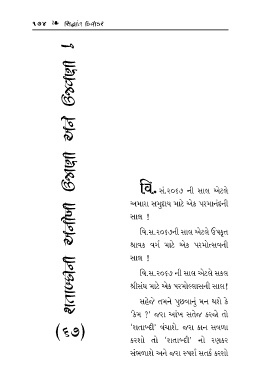 ૧૭૪ ❧ સિદ્ધાંત દિવાકર
શતાબ્દીની અનોખી ઉજાણી અને ઉજવણી !
(૬૭)
વિ. સં.૨૦૬૭ ની સાલ એટલે
અમારા સમુદાય માટે એક પરમાનંદની
સાલ !
વિ.સ.૨૦૬૭ની સાલ એટલે ઉપકૃત
શ્રાવક વર્ગ માટે એક પરમોત્સવની
સાલ !
વિ.સ.૨૦૬૭ ની સાલ એટલે સકલ
શ્રીસંઘ માટે એક પરમોલ્લાસની સાલ!
સહેજે તમને પુછવાનું મન થશે કે
'કેમ ?' જરા આંખ સતેજ કરજો તો
'શતાબ્દી' વંચાશે. જરા કાન સરવા
કરશો તો 'શતાબ્દી' નો રણકર
સંભળાશે અને જરા સ્પર્શ સતર્ક કરશો